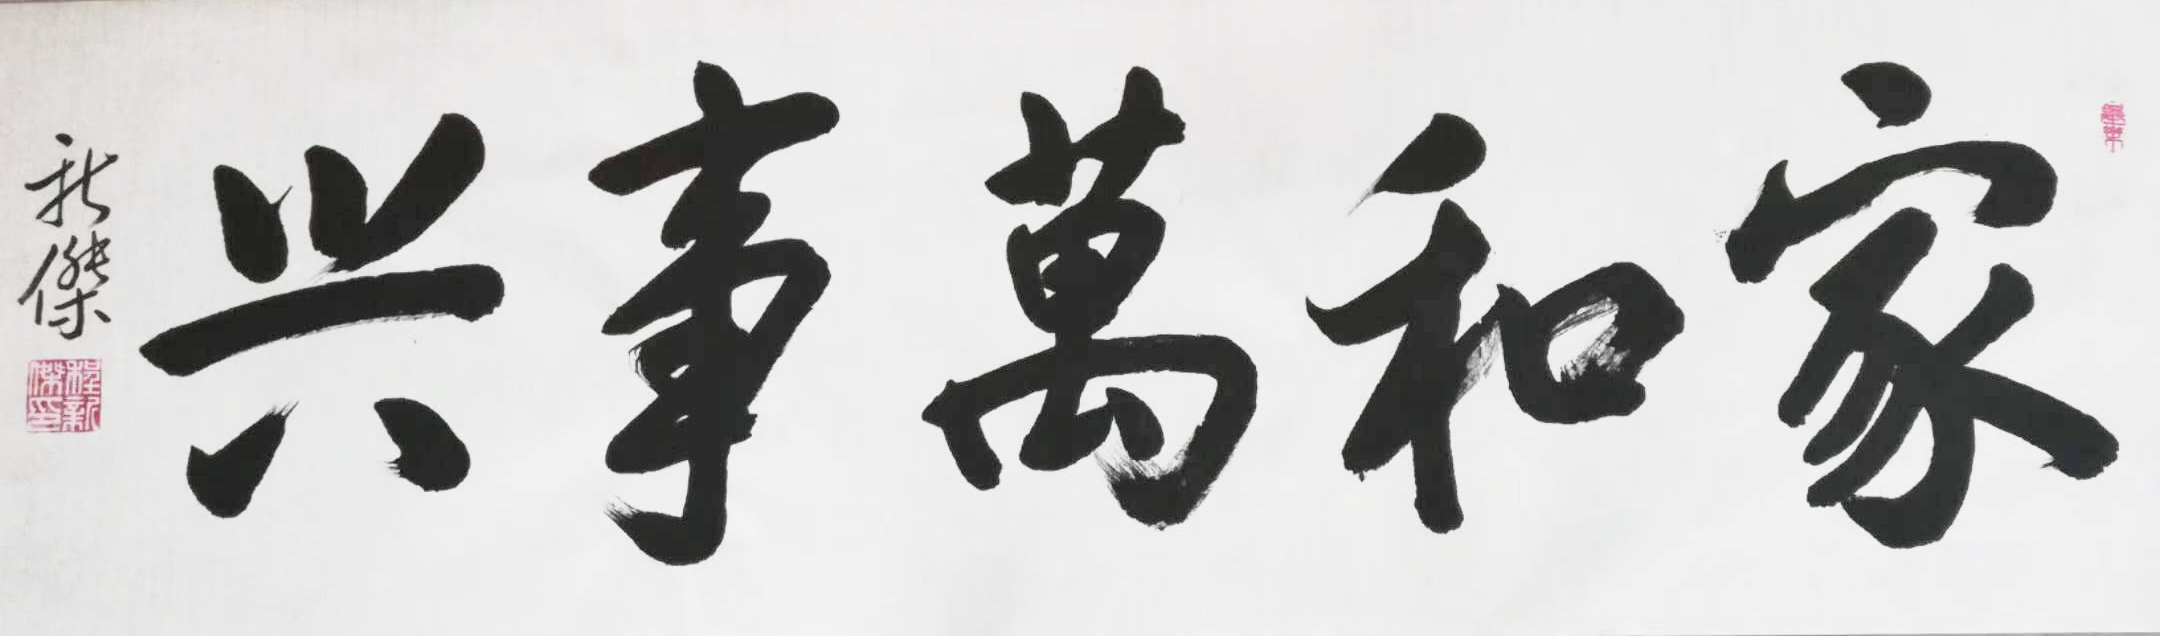 家和萬事兴
新傑
程新傑印